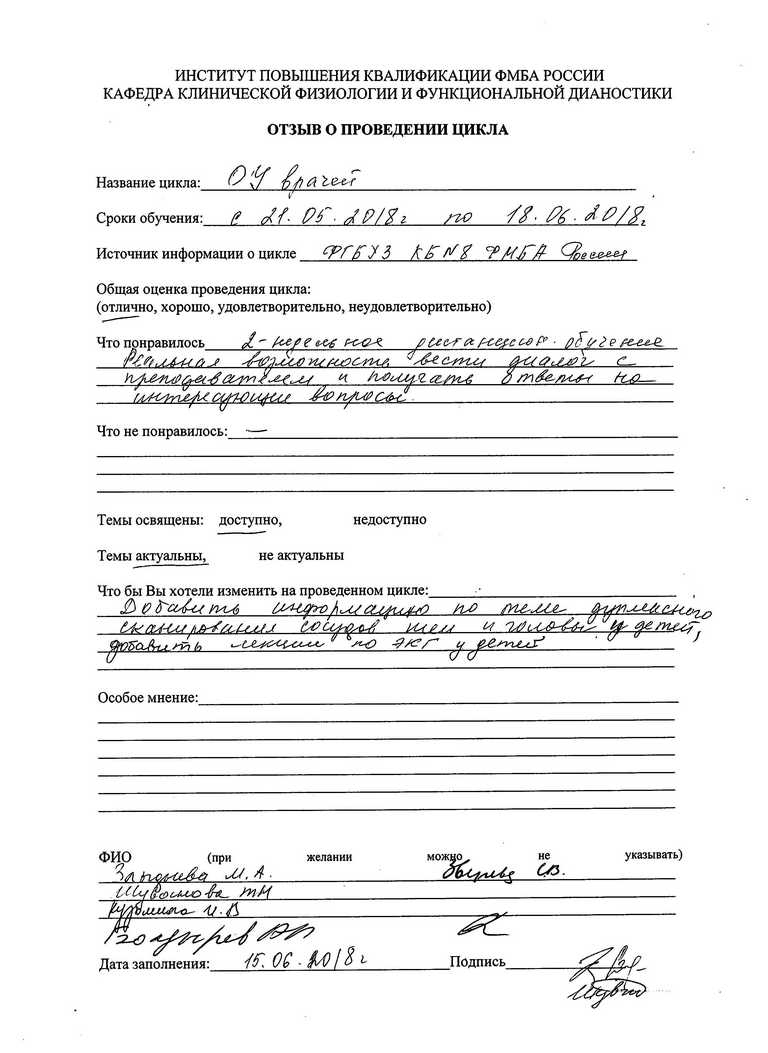 ИНСТИТУТ ПОВЫШЕНИЯ КВАЛИФИКАЦИИ ФМБА РОССИИ
КАФЕДРА КЛИНИЧЕСКОЙ ФИЗИОЛОГИИ И ФУНКЦИОНАЛЬНОЙ ДИАНОСТИКИ
ОТЗЫВ О ПРОВЕДЕНИИ ЦИКЛА
Название цикла: ОУ врачей
Сроки обучения: с 21.05.2018г по 18.06.2018г
Источник информации о цикле ФГБУЗ КБ№8 ФМБА России
Общая оценка проведения цикла:
(отлично, хорошо, удовлетворительно, неудовлетворительно)
Что понравилось 2-недельное дистанцион. обучение
Реальная возможность вести диалог с
преподавателем и получать ответы на
интересующие вопросы.
Что не понравилось: —
Темы освящены: доступно, недоступно
Темы актуальны, не актуальны
Что бы Вы хотели изменить на проведенном цикле:
Добавить информацию по теме дуплексного
сканирования сосудов шеи и головы у детей,
добавить лекции по ЭКГ у детей
Особое мнение:
ФИО (при желании можно не указывать)
М.А. С.В.
ТМ
Кузьмина И.В
Дата заполнения: 15.06.2018г Подпись